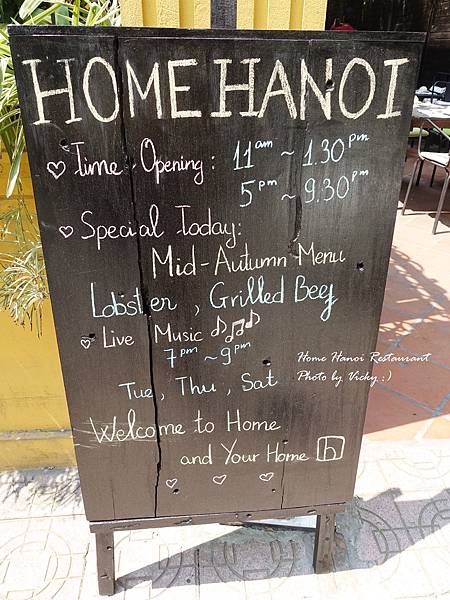 HOME HANOI
♡ Time Opening: 11am ~ 1.30pm
5pm ~ 9.30pm
♡ Special Today:
Mid-Autumn Menu
Lobster, Grilled Beef
♡ Live Music ♪♫♪
7pm ~ 9pm
Tue, Thu, Sat
Welcome to Home
and Your Home h
♡ ♡ ♡
Home Hanoi Restaurant
Photo by Vicky :)